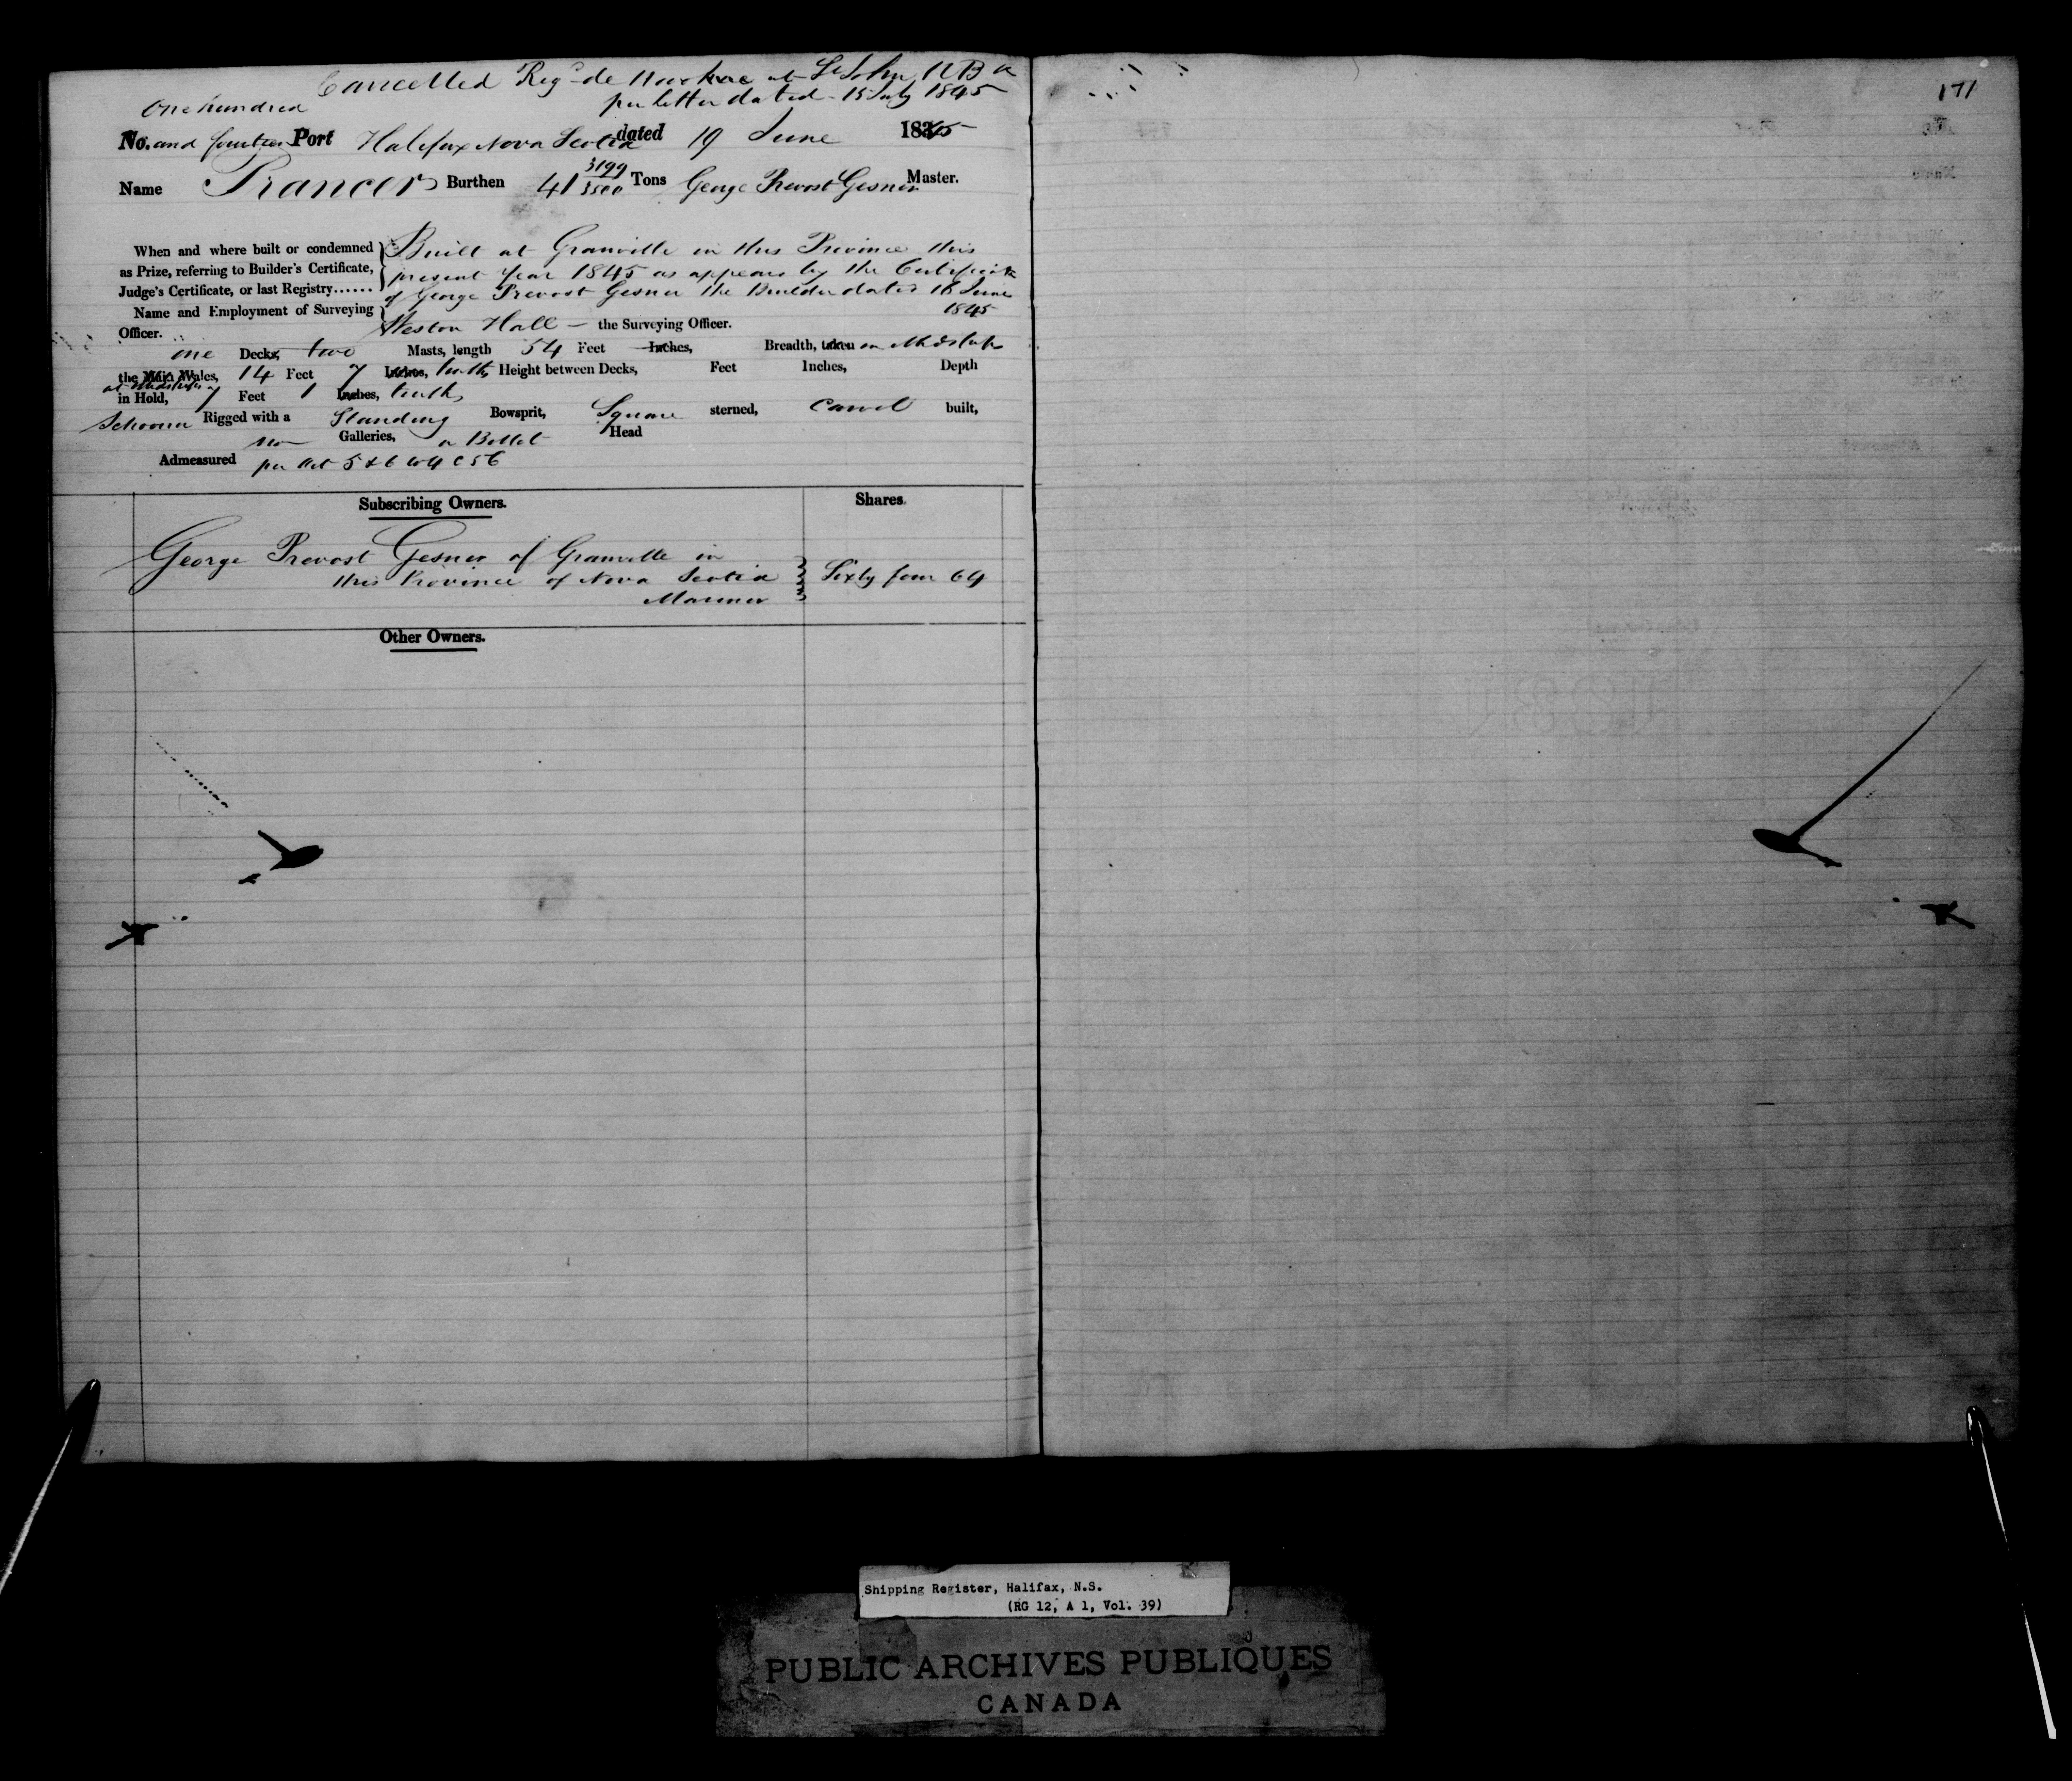 Cancelled Regd de Novo here at St John N B
per letter dated 15 July 1845
171
One hundred
No. and fourteen Port Halifax Nova Scotia dated 19 June 1845
Name Prancer Burthen 41 3199/3500 Tons George Prevost Gesner Master.
When and where built or condemned
as Prize, referring to Builder's Certificate,
Judge's Certificate, or last Registry......
Built at Granville in this Province this
present year 1845 as appears by the Certificate
of George Prevost Gesner the Builder dated 18 June
1845
Name and Employment of Surveying
Officer.
Weston Hall — the Surveying Officer.
one Decks, two Masts, length 54 Feet Inches, Breadth, taken in Midships
the Main Wales, 14 Feet 7 Inches, tenths Height between Decks, Feet Inches, Depth
at Midships
in Hold, 7 Feet 1 Inches, tenths
Schooner Rigged with a Standing Bowsprit, Square sterned, Carvel built,
no Galleries, a Billet Head
Admeasured per Act 5 & 6 W 4 C 56
Subscribing Owners. Shares.
George Prevost Gesner of Granville in
this Province of Nova Scotia Sixty four 64
Mariner
Other Owners.
Shipping Register, Halifax, N.S.
(RG 12, A 1, Vol. 39)
PUBLIC ARCHIVES PUBLIQUES
CANADA